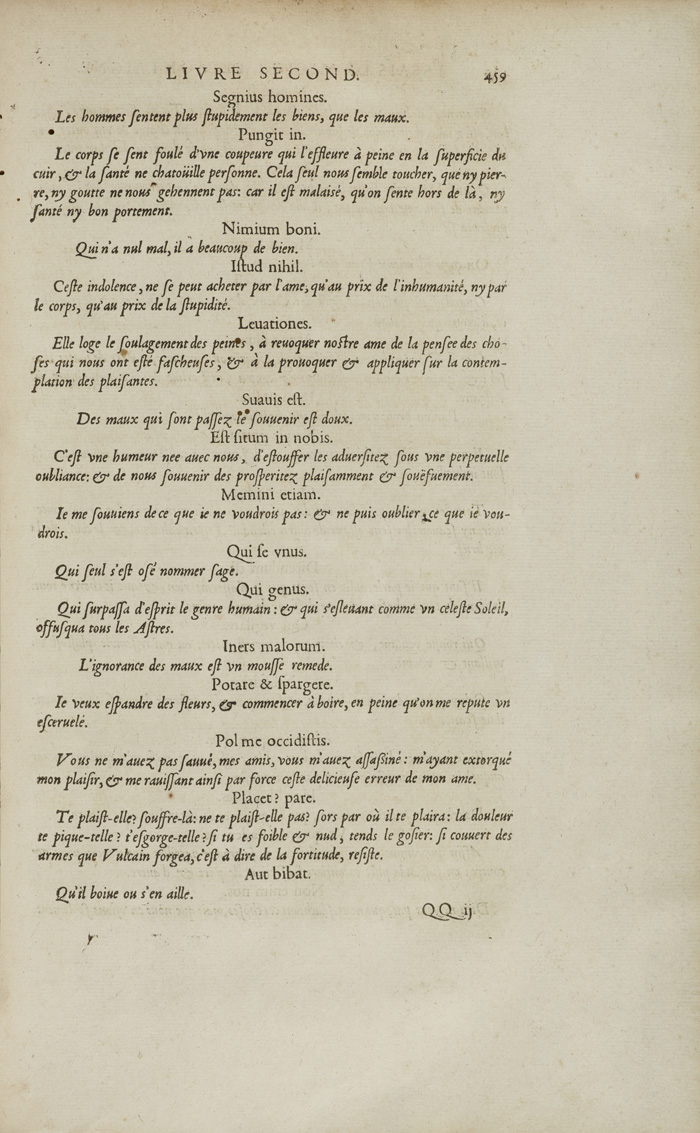 LIVRE SECOND. 459
Segnius homines.
Les hommes ſentent plus ſtupidement les biens, que les maux.
Pungit in.
Le corps ſe ſent foulé d'vne coupeure qui l'effleure à peine en la ſuperficie du
cuir, & la ſanté ne chatoüille perſonne. Cela ſeul nous ſemble toucher, que ny pier-
re, ny goutte ne nous gehennent pas: car il eſt malaisé, qu'on ſente hors de là, ny
ſanté ny bon portement.
Nimium boni.
Qui n'a nul mal, il a beaucoup de bien.
Iſtud nihil.
Ceſte indolence, ne ſe peut acheter par l'ame, qu'au prix de l'inhumanité, ny par
le corps, qu'au prix de la ſtupidité.
Leuationes.
Elle loge le ſoulagement des peines, à reuoquer noſtre ame de la penſee des cho-
ſes qui nous ont eſté faſcheuſes, & à la prouoquer & appliquer ſur la contem-
plation des plaiſantes.
Suauis eſt.
Des maux qui ſont paſſez le ſouuenir eſt doux.
Eſt ſitum in nobis.
C'eſt vne humeur nee auec nous, d'eſtouffer les aduerſitez ſous vne perpetuelle
oubliance: & de nous ſouuenir des proſperitez plaiſamment & ſouëfuement.
Memini etiam.
Ie me ſouuiens de ce que ie ne voudrois pas: & ne puis oublier ce que ie vou-
drois.
Qui ſe vnus.
Qui ſeul s'eſt oſé nommer ſage.
Qui genus.
Qui ſurpaſſa d'eſprit le genre humain: & qui s'eſleuant comme vn celeſte Soleil,
offuſqua tous les Aſtres.
Iners malorum.
L'ignorance des maux eſt vn mouſſe remede.
Potare & ſpargere.
Ie veux eſpandre des fleurs, & commencer à boire, en peine qu'on me repute vn
eſceruelé.
Pol me occidiſtis.
Vous ne m'auez pas ſauué, mes amis, vous m'auez aſſaßiné: m'ayant extorqué
mon plaiſir, & me rauiſſant ainſi par force ceſte delicieuſe erreur de mon ame.
Placet? pare.
Te plaiſt-elle? ſouffre-là: ne te plaiſt-elle pas? ſors par où il te plaira: la douleur
te pique-telle? t'eſgorge-telle? ſi tu es foible & nud, tends le goſier: ſi couuert des
armes que Vulcain forgea, c'eſt à dire de la fortitude, reſiſte.
Aut bibat.
Qu'il boiue ou s'en aille.
QQ ij